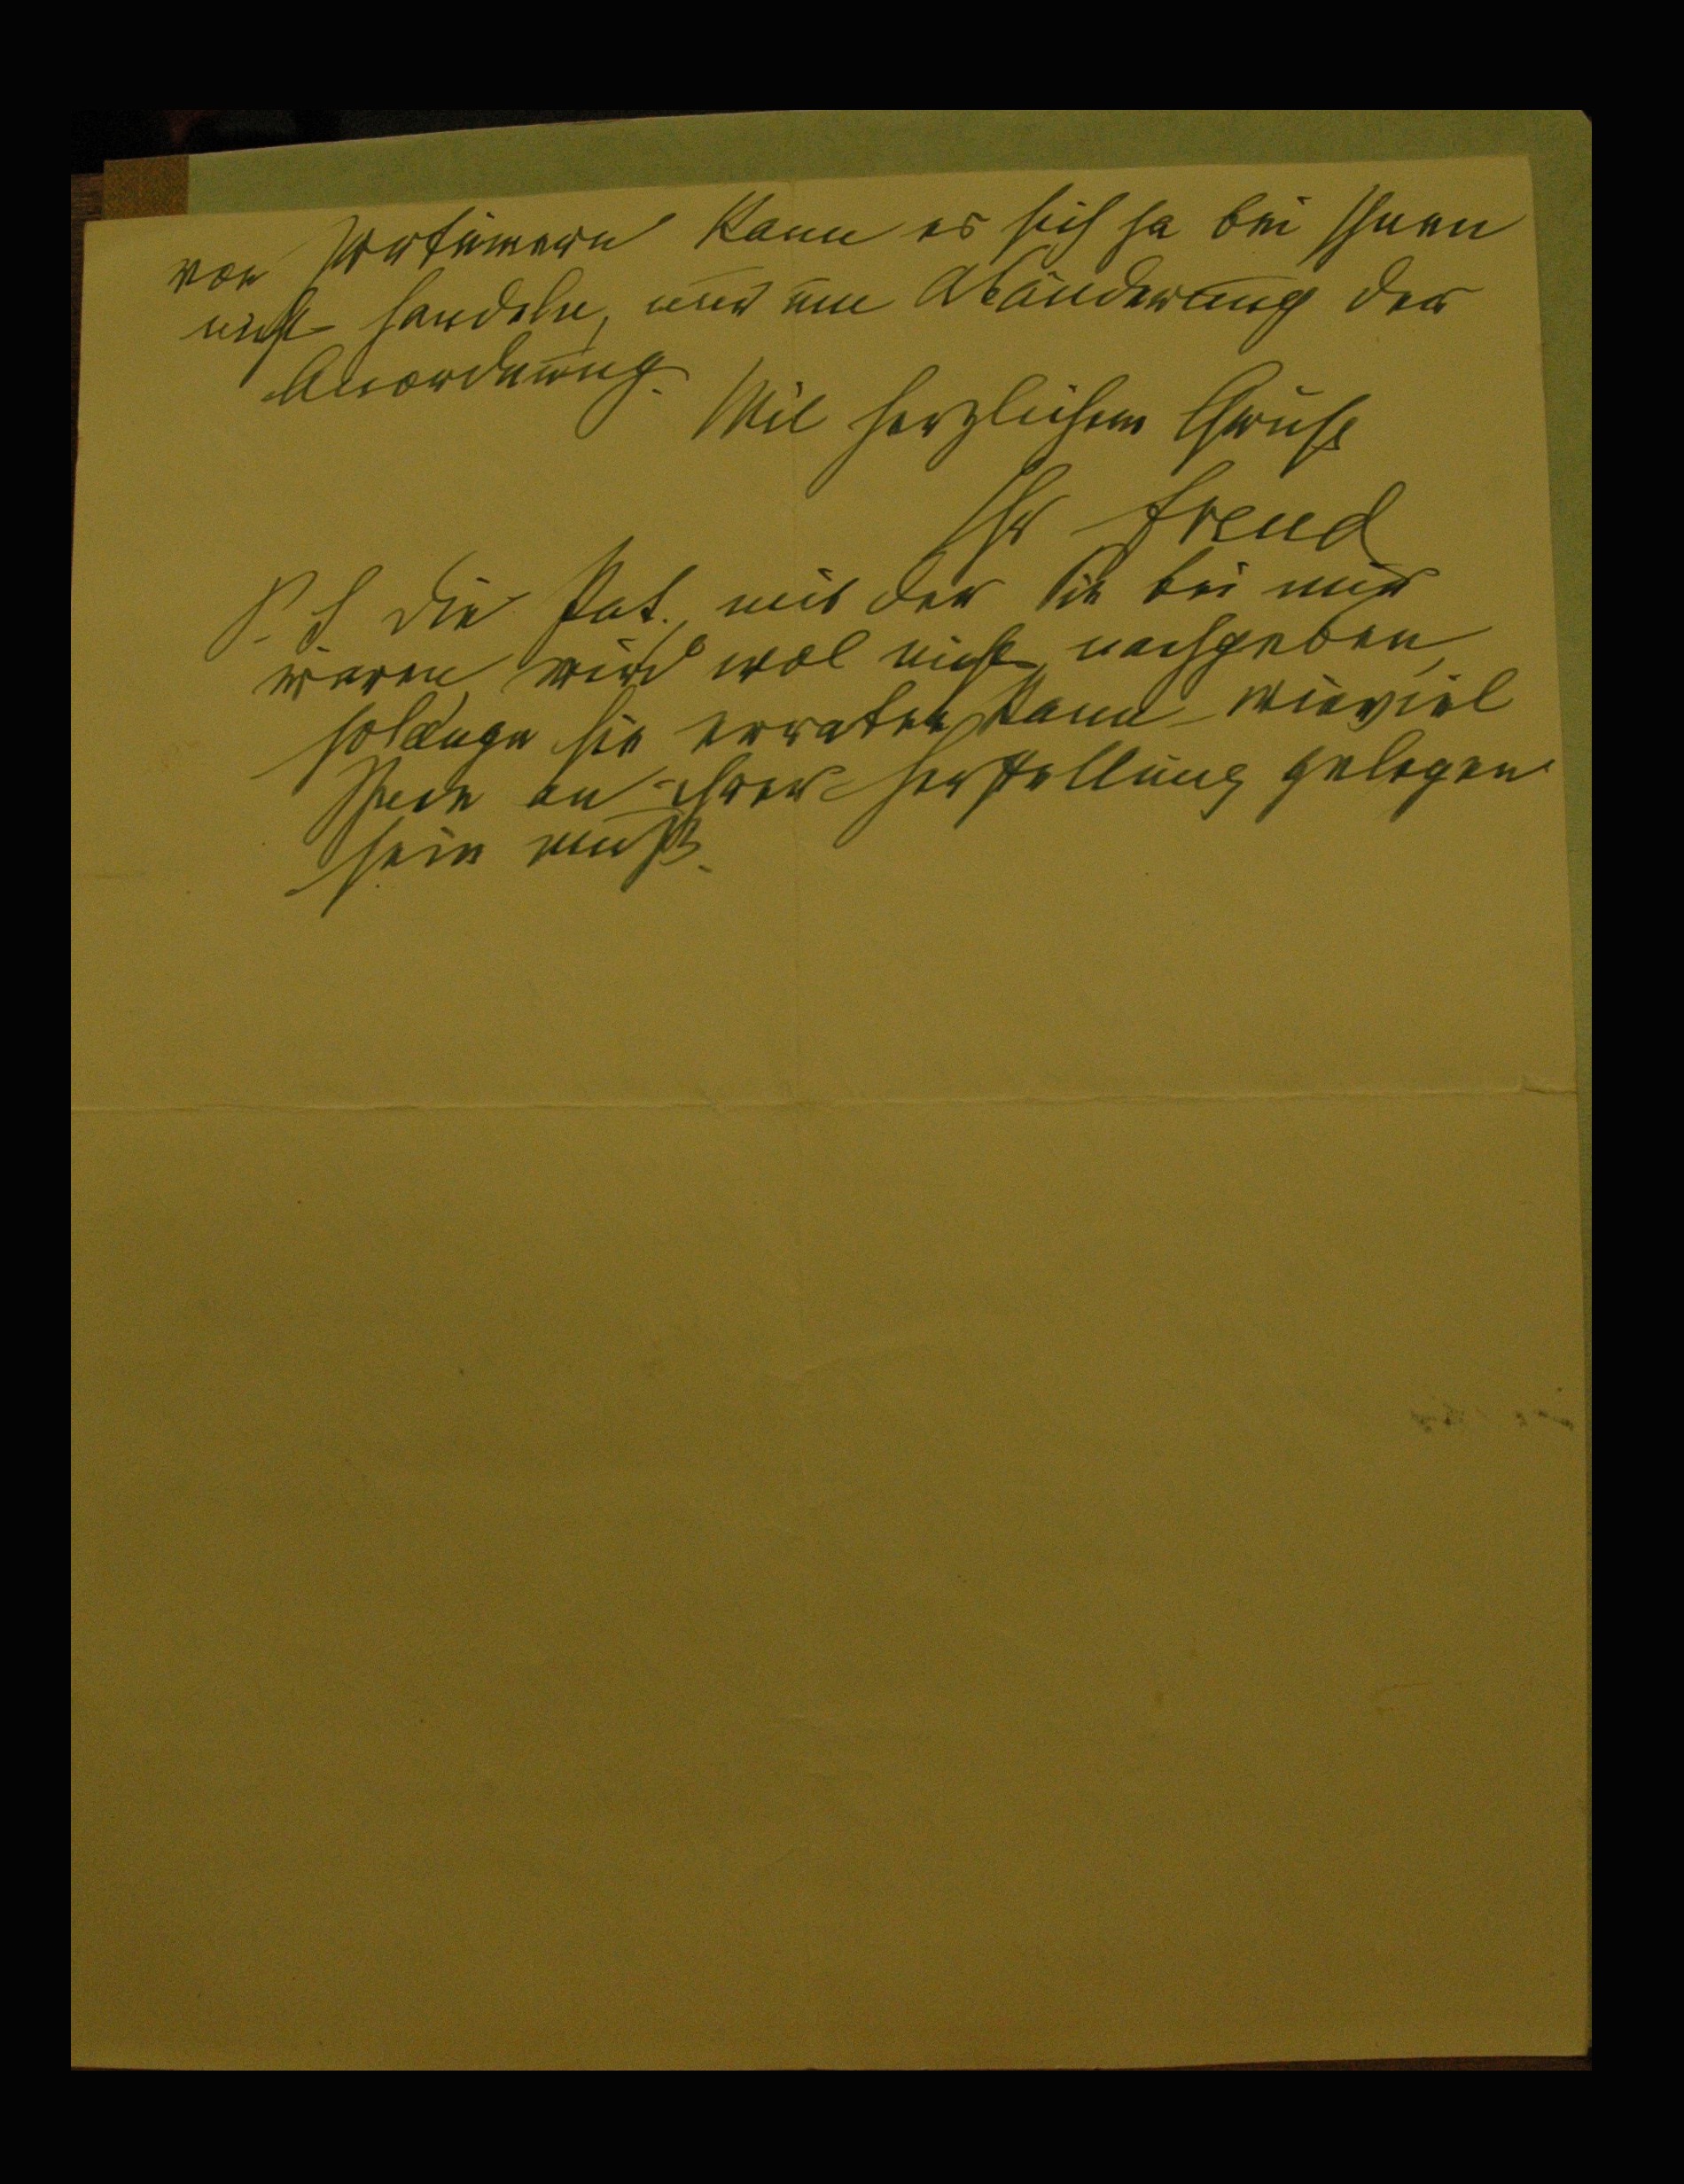 von Irrtümern kann es sich ja bei Ihnen
nicht handeln, nur um Abänderung der
Anordnung.
Mit herzlichem Gruß
Ihr Freud
P. S. Die Pat., mit der Sie bei mir
waren, wird wol nicht nachgeben,
solange sie erraten kann wieviel
Ihnen an ihrer Herstellung gelegen
sein muß.